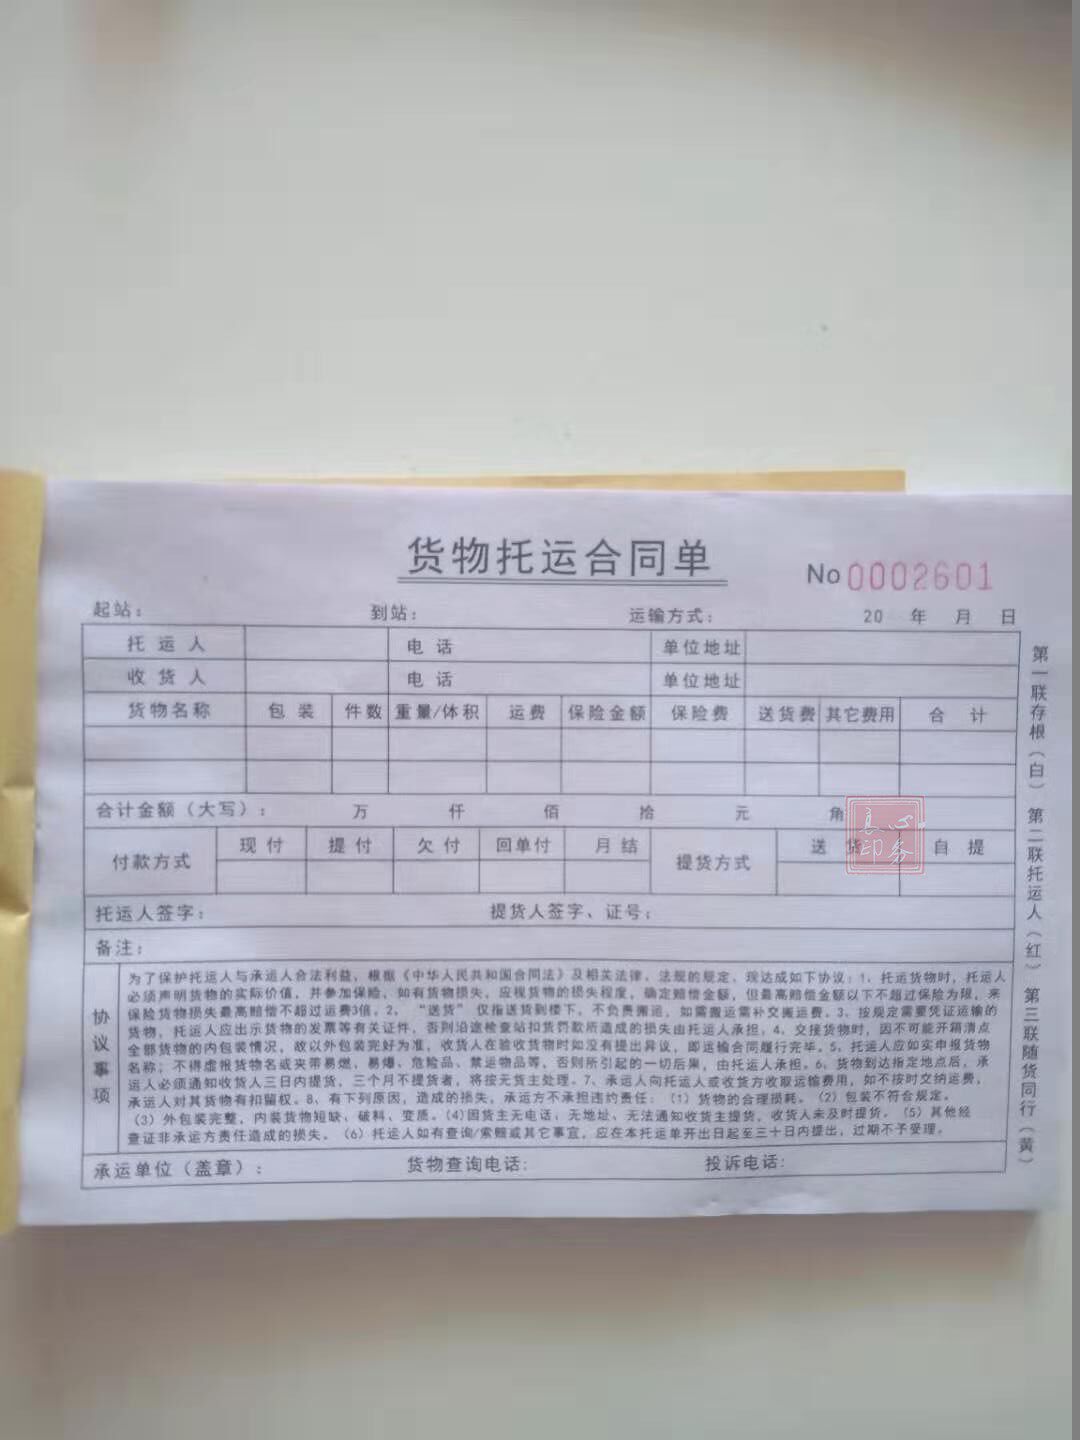 货物托运合同单
No 0002601
起站： 到站： 运输方式： 20 年 月 日
托运人 电话 单位地址
收货人 电话 单位地址
货物名称 包装 件数 重量/体积 运费 保险金额 保险费 送货费 其它费用 合计
合计金额（大写）： 万 仟 佰 拾 元 角
付款方式 现付 提付 欠付 回单付 月结 提货方式 送货 自提
托运人签字： 提货人签字、证号：
备注：
协议事项
为了保护托运人与承运人合法利益，根据《中华人民共和国合同法》及相关法律、法规的规定，现达成如下协议：1、托运货物时，托运人
必须声明货物的实际价值，并参加保险，如有货物损失，应视货物的损失程度，确定赔偿金额，但最高赔偿金额以下不超过保险为限，来
保险货物损失最高赔偿不超过运费3倍。2、“送货”仅指送货到楼下，不负责搬运，如需搬运需补交搬运费。3、按规定需要凭证运输的
货物，托运人应出示货物的发票等有关证件，否则沿途检查站扣货罚款所造成的损失由托运人承担。4、交接货物时，因不可能开箱清点
全部货物的内包装情况，故以外包装完好为准，收货人在验收货物时如没有提出异议，即运输合同履行完毕。5、托运人应如实申报货物
名称；不得虚报货物名或夹带易燃、易爆、危险品、禁运物品等，否则所引起的一切后果，由托运人承担。6、货物到达指定地点后，承
运人必须通知收货人三日内提货，三个月不提货者，将按无货主处理。7、承运人向托运人或收货方收取运输费用，如不按时交纳运费，
承运人对其货物有扣留权。8、有下列原因，造成的损失，承运方不承担违约责任：（1）货物的合理损耗。（2）包装不符合规定。
（3）外包装完整，内装货物短缺、破料、变质。（4）因货主无电话，无地址、无法通知收货主提货，收货人未及时提货。（5）其他经
查证非承运方责任造成的损失。（6）托运人如有查询/索赔或其它事宜，应在本托运单开出日起至三十日内提出，过期不予受理。
承运单位（盖章）： 货物查询电话： 投诉电话：
第一联存根（白） 第二联托运人（红） 第三联随货同行（黄）
良心
印务